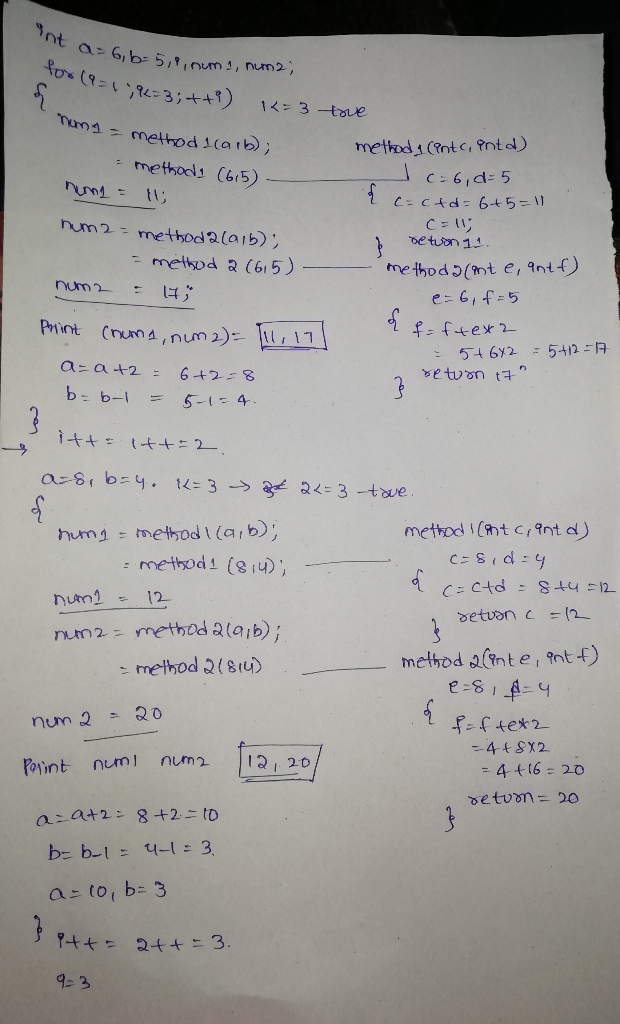 int a=6, b=5, i, num1, num2;
for (i=1; i<=3; ++i) 1<=3 true
{
num1 = method1(a,b);
= method1 (6,5)
num1 = 11;
method1 (int c, int d)
c=6, d=5
{ c=c+d = 6+5=11
c=11;
} return 11.
num2 = method2(a,b);
= method 2 (6,5)
num2 = 17;
method2(int e, int f)
e=6, f=5
{ f=f+e*2
= 5+6x2 = 5+12=17
return 17
}
Print (num1, num2)= 11, 17
a=a+2 = 6+2=8
b=b-1 = 5-1=4.
}
→ i++ = 1++=2
a=8, b=4. 1<=3 → 2<=3 true.
{
num1 = method1(a,b);
= method1 (8,4);
num1 = 12
method1(int c, int d)
c=8, d=4
{ c=c+d = 8+4=12
return c =12
}
num2 = method2(a,b);
= method 2(8,4)
num 2 = 20
method 2(int e, int f)
e=8, f=4
{ f=f+e*2
=4+8x2
=4+16=20
return = 20
}
Print num1 num2 12, 20
a=a+2= 8+2=10
b=b-1 = 4-1=3.
a=10, b=3
} i++= 2++=3.
i=3